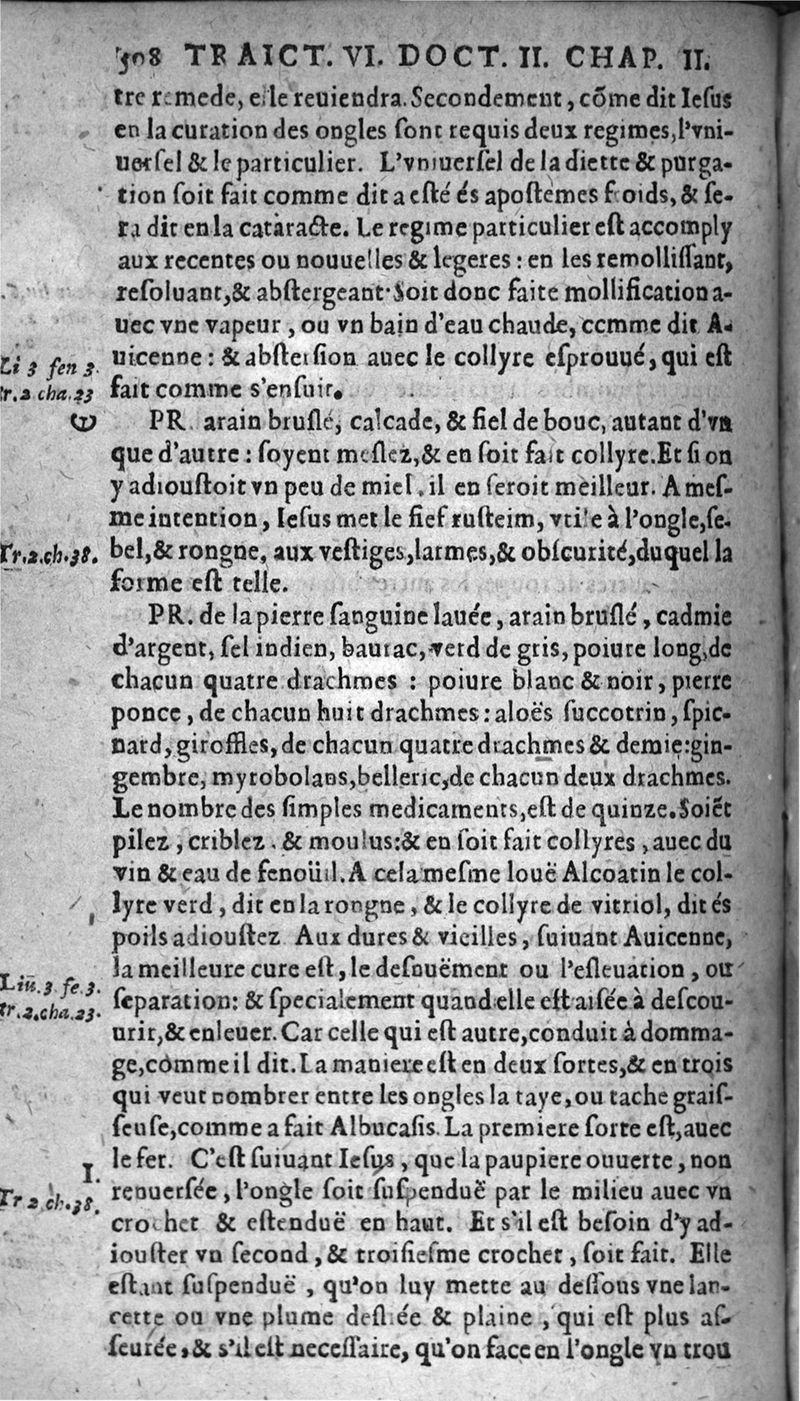 508 TRAICT. VI. DOCT. II. CHAP. II.
tre remede, elle reuiendra. Secondement, cõme dit Iesus
en la curation des ongles sont requis deux regimes, l'vni-
uersel & le particulier. L'vniuersel de la diette & purga-
tion soit fait comme dit a esté és apostemes froids, & se-
ra dit en la catàracte. Le regime particulier est accomply
aux recentes ou nouuelles & legeres : en les remollissant,
resoluant, & abstergeant. Soit donc faite mollification a-
uec vne vapeur, ou vn bain d'eau chaude, comme dit A-
uicenne : & abstersion auec le collyre esprouué, qui est
Li 3 fen 3.
tr.2 cha.23
fait comme s'ensuit.
PR. arain bruslé, calcade, & fiel de bouc, autant d'vn
que d'autre : soyent meslez, & en soit fait collyre. Et si on
y adioustoit vn peu de miel, il en seroit meilleur. A mes-
me intention, Iesus met le sief rusteim, vtile à l'ongle, se-
Tr.2.ch.38.
bel, & rongne, aux vestiges, larmes, & obscurité, duquel la
forme est telle.
PR. de la pierre sanguine lauée, arain bruslé, cadmie
d'argent, sel indien, baurac, verd de gris, poiure long, de
chacun quatre drachmes : poiure blanc & noir, pierre
ponce, de chacun huit drachmes : aloës succotrin, spic-
nard, giroffles, de chacun quatre drachmes & demie: gin-
gembre, myrobolans, belleric, de chacun deux drachmes.
Le nombre des simples medicaments, est de quinze. Soiẽt
pilez, criblez, & moulus: & en soit fait collyres, auec du
vin & eau de fenoüil. A cela mesme louë Alcoatin le col-
lyre verd, dit en la rongne, & le collyre de vitriol, dit és
poils adioustez Aux dures & vieilles, suiuant Auicenne,
la meilleure cure est, le desnuëment ou l'esleuation, ou
Liu.3 fe.3.
tr.2.cha.23.
separation: & specialement quand elle est aisée à descou-
urir, & enleuer. Car celle qui est autre, conduit à domma-
ge, comme il dit. La maniere est en deux sortes, & en trois
qui veut nombrer entre les ongles la taye, ou tache grais-
seuse, comme a fait Albucasis. La premiere sorte est, auec
I.
le fer. C'est suiuant Iesus, que la paupiere ouuerte, non
Tr 2 ch.38.
renuersée, l'ongle soit suspenduë par le milieu auec vn
crochet & estenduë en haut. Et s'il est besoin d'y ad-
iouster vn second, & troisiesme crochet, soit fait. Elle
estant suspenduë, qu'on luy mette au dessous vne lan-
cette ou vne plume desliée & plaine, qui est plus as-
seurée, & s'il est necessaire, qu'on face en l'ongle vn trou